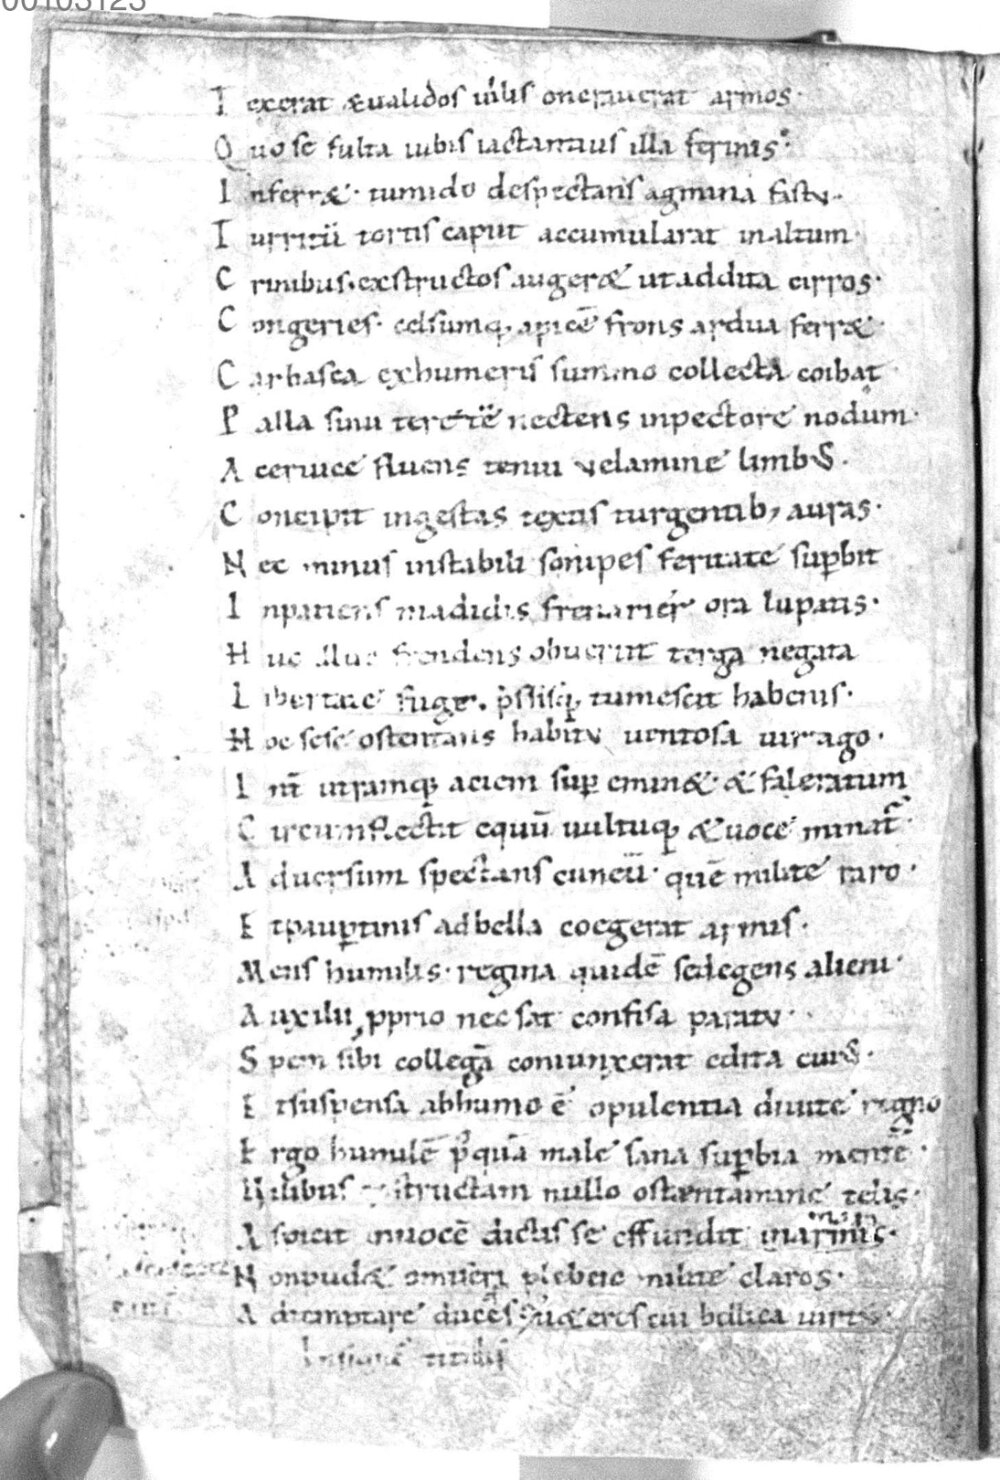 00103123
T exerat & ualidos uillis onerauerat armos·
Q uo se fulta iubis iactantius illa ferinis·
I nferr&· tumido despectans agmina fastu·
T urritū tortis caput accumularat in altum·
C rinibus· exstructos auger& ut addita cirros·
C ongeries· celsumq; apicē frons ardua ferr&·
C arbasea ex humeris summo collecta coibat
P alla sinu teretē nectens in pectore nodum·
A ceruice fluens tenui uelamine limbus·
C oncipit ingestas textis turgentib; auras·
N ec minus instabili sonipes feritate supbit
I npatiens madidis frenarier ora lupatis·
H uc illuc frendens obuertit terga negata
L ibertate fuge· p̄ssisq; tumescit habenis·
H oc sese ostentans habitu uentosa uirago·
I nt̄ utramq; aciem sup emin&· & faleratum
C ircumflectit equū uultuq; & uoce minat̄·
A duersum spectans cuneū· quē milite raro·
E t paup̄tinis ad bella coegerat armis·
M ens humilis· regina quidē sed egens alieni·
A uxilii pprio nec sat confisa paratu·
S pem sibi collegā coniunxerat edita cuius·
E t suspensa ab humo ē opulentia diuite regno
E rgo humilē p̄quā male sana supbia mentē·
U ilibus structam nullo ostentamine telis·
A spicit in uocē dictis se effundit amaris·
N on pud& o miseri plebeio milite claros·
A dtemptare duces
bellica uirtus·
Insigne titulis